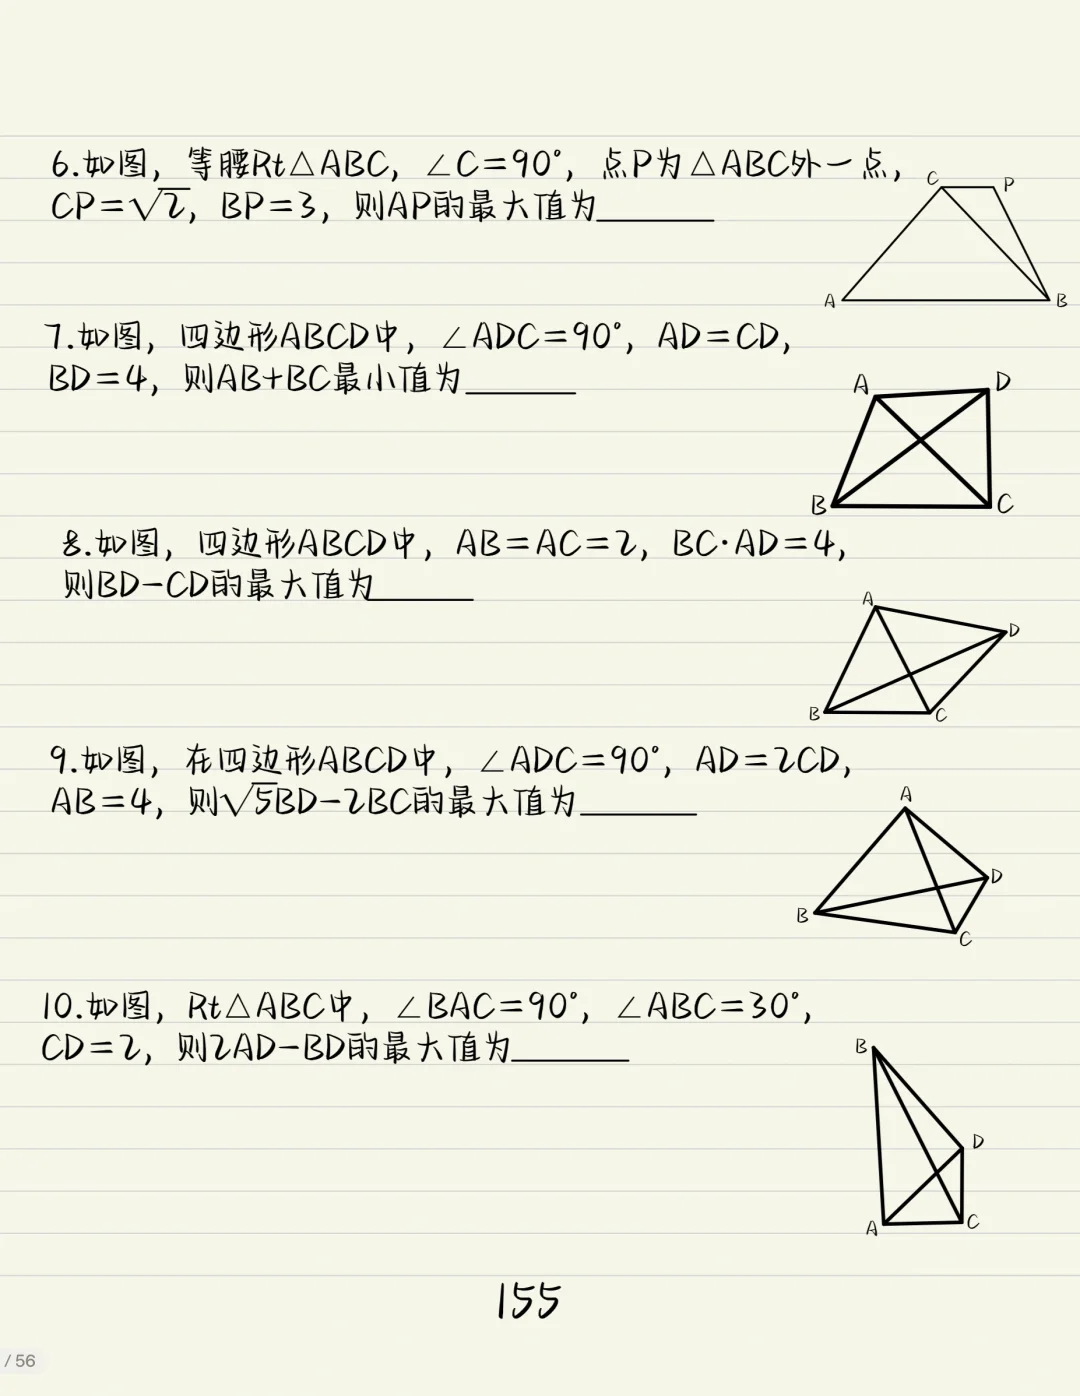 6.如图，等腰Rt△ABC，∠C=90°，点P为△ABC外一点，
CP=√2，BP=3，则AP的最大值为______
C P
A B
7.如图，四边形ABCD中，∠ADC=90°，AD=CD，
BD=4，则AB+BC最小值为______
A D
B C
8.如图，四边形ABCD中，AB=AC=2，BC·AD=4，
则BD-CD的最大值为______
A
D
B C
9.如图，在四边形ABCD中，∠ADC=90°，AD=2CD，
AB=4，则√5BD-2BC的最大值为______
A
D
B
C
10.如图，Rt△ABC中，∠BAC=90°，∠ABC=30°，
CD=2，则2AD-BD的最大值为______
B
D
A C
155
/ 56